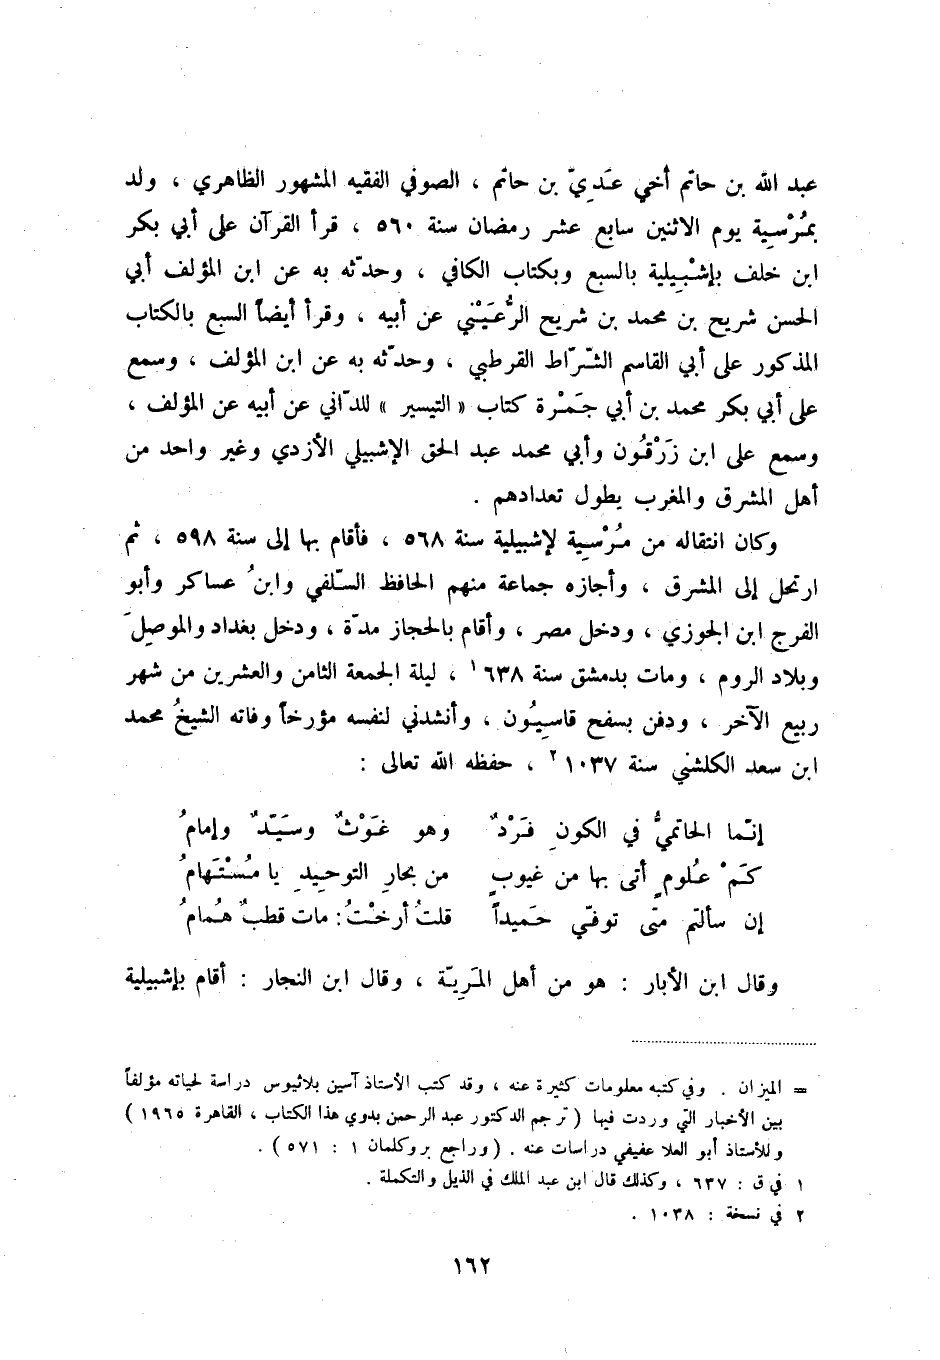 عبد الله بن حاتم أخي عَديّ بن حاتم ، الصوفي الفقيه المشهور الظاهري ، ولد
بمُرْسية يوم الاثنين سابع عشر رمضان سنة ٥٦٠ ، قرأ القرآن على أبي بكر
ابن خلف بإشْبيلية بالسبع وبكتاب الكافي ، وحدّثه به عن ابن المؤلف أبي
الحسن شريح بن محمد بن شريح الرُّعَيْني عن أبيه ، وقرأ أيضاً السبع بالكتاب
المذكور على أبي القاسم الشّرّاط القرطبي ، وحدّثه به عن ابن المؤلف ، وسمع
على أبي بكر محمد بن أبي جَمْرة كتاب « التيسير » للدّاني عن أبيه عن المؤلف ،
وسمع على ابن زَرْقُون وأبي محمد عبد الحق الإشبيلي الأزدي وغير واحد من
أهل المشرق والمغرب يطول تعدادهم .
وكان انتقاله من مُرْسِية لإشبيلية سنة ٥٦٨ ، فأقام بها إلى سنة ٥٩٨ ، ثم
ارتحل إلى المشرق ، وأجازه جماعة منهم الحافظ السّلفي وابنُ عساكر وأبو
الفرج ابن الجوزي ، ودخل مصر ، وأقام بالحجاز مدّة ، ودخل بغداد والموصِلَ
وبلاد الروم ، ومات بدمشق سنة ٦٣٨ ١ ، ليلة الجمعة الثامن والعشرين من شهر
ربيع الآخر ، ودفن بسفح قاسِيُون ، وأنشدني لنفسه مؤرخاً وفاته الشيخُ محمد
ابن سعد الكلشني سنة ١٠٣٧ ٢ ، حفظه الله تعالى :
إنّما الحاتميُّ في الكونِ فَرْدٌ وهو غَوْثٌ وسَيّدٌ وإمامُ
كَمْ عُلومٍ أتى بها من غيوبٍ من بحارِ التوحيدِ يا مُسْتَهامُ
إن سألتم متى توفّي حَميداً قلتُ أرختُ: مات قطبٌ هُمامُ
وقال ابن الأبار : هو من أهل المَرِيّة ، وقال ابن النجار : أقام بإشبيلية
= الميزان . وفي كتبه معلومات كثيرة عنه ، وقد كتب الأستاذ آسين بلاثيوس دراسة لحياته مؤلفاً
بين الأخبار التي وردت فيها ( ترجم الدكتور عبد الرحمن بدوي هذا الكتاب ، القاهرة ١٩٦٥ )
وللأستاذ أبو العلا عفيفي دراسات عنه . ( وراجع بروكلمان ١ : ٥٧١ ) .
١ في ق : ٦٣٧ ، وكذلك قال ابن عبد الملك في الذيل والتكملة .
٢ في نسخة : ١٠٣٨ .
١٦٢